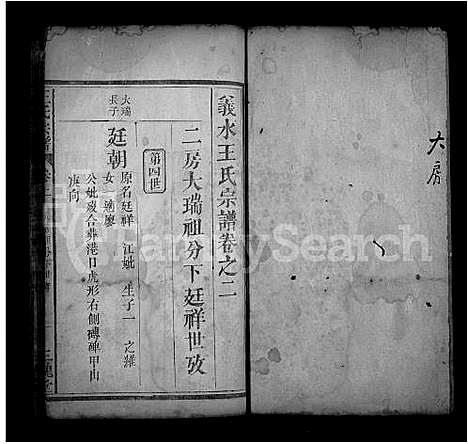 義水王氏宗譜卷之二
二房大瑞祖分下廷祥世攷
第四世
大瑞
長子
廷朝
原名廷祥 江妣 生子一 之濰
女一適廖
公妣歿合葬港口虎形右側磚碑甲山
庚向
大房
FamilySearch